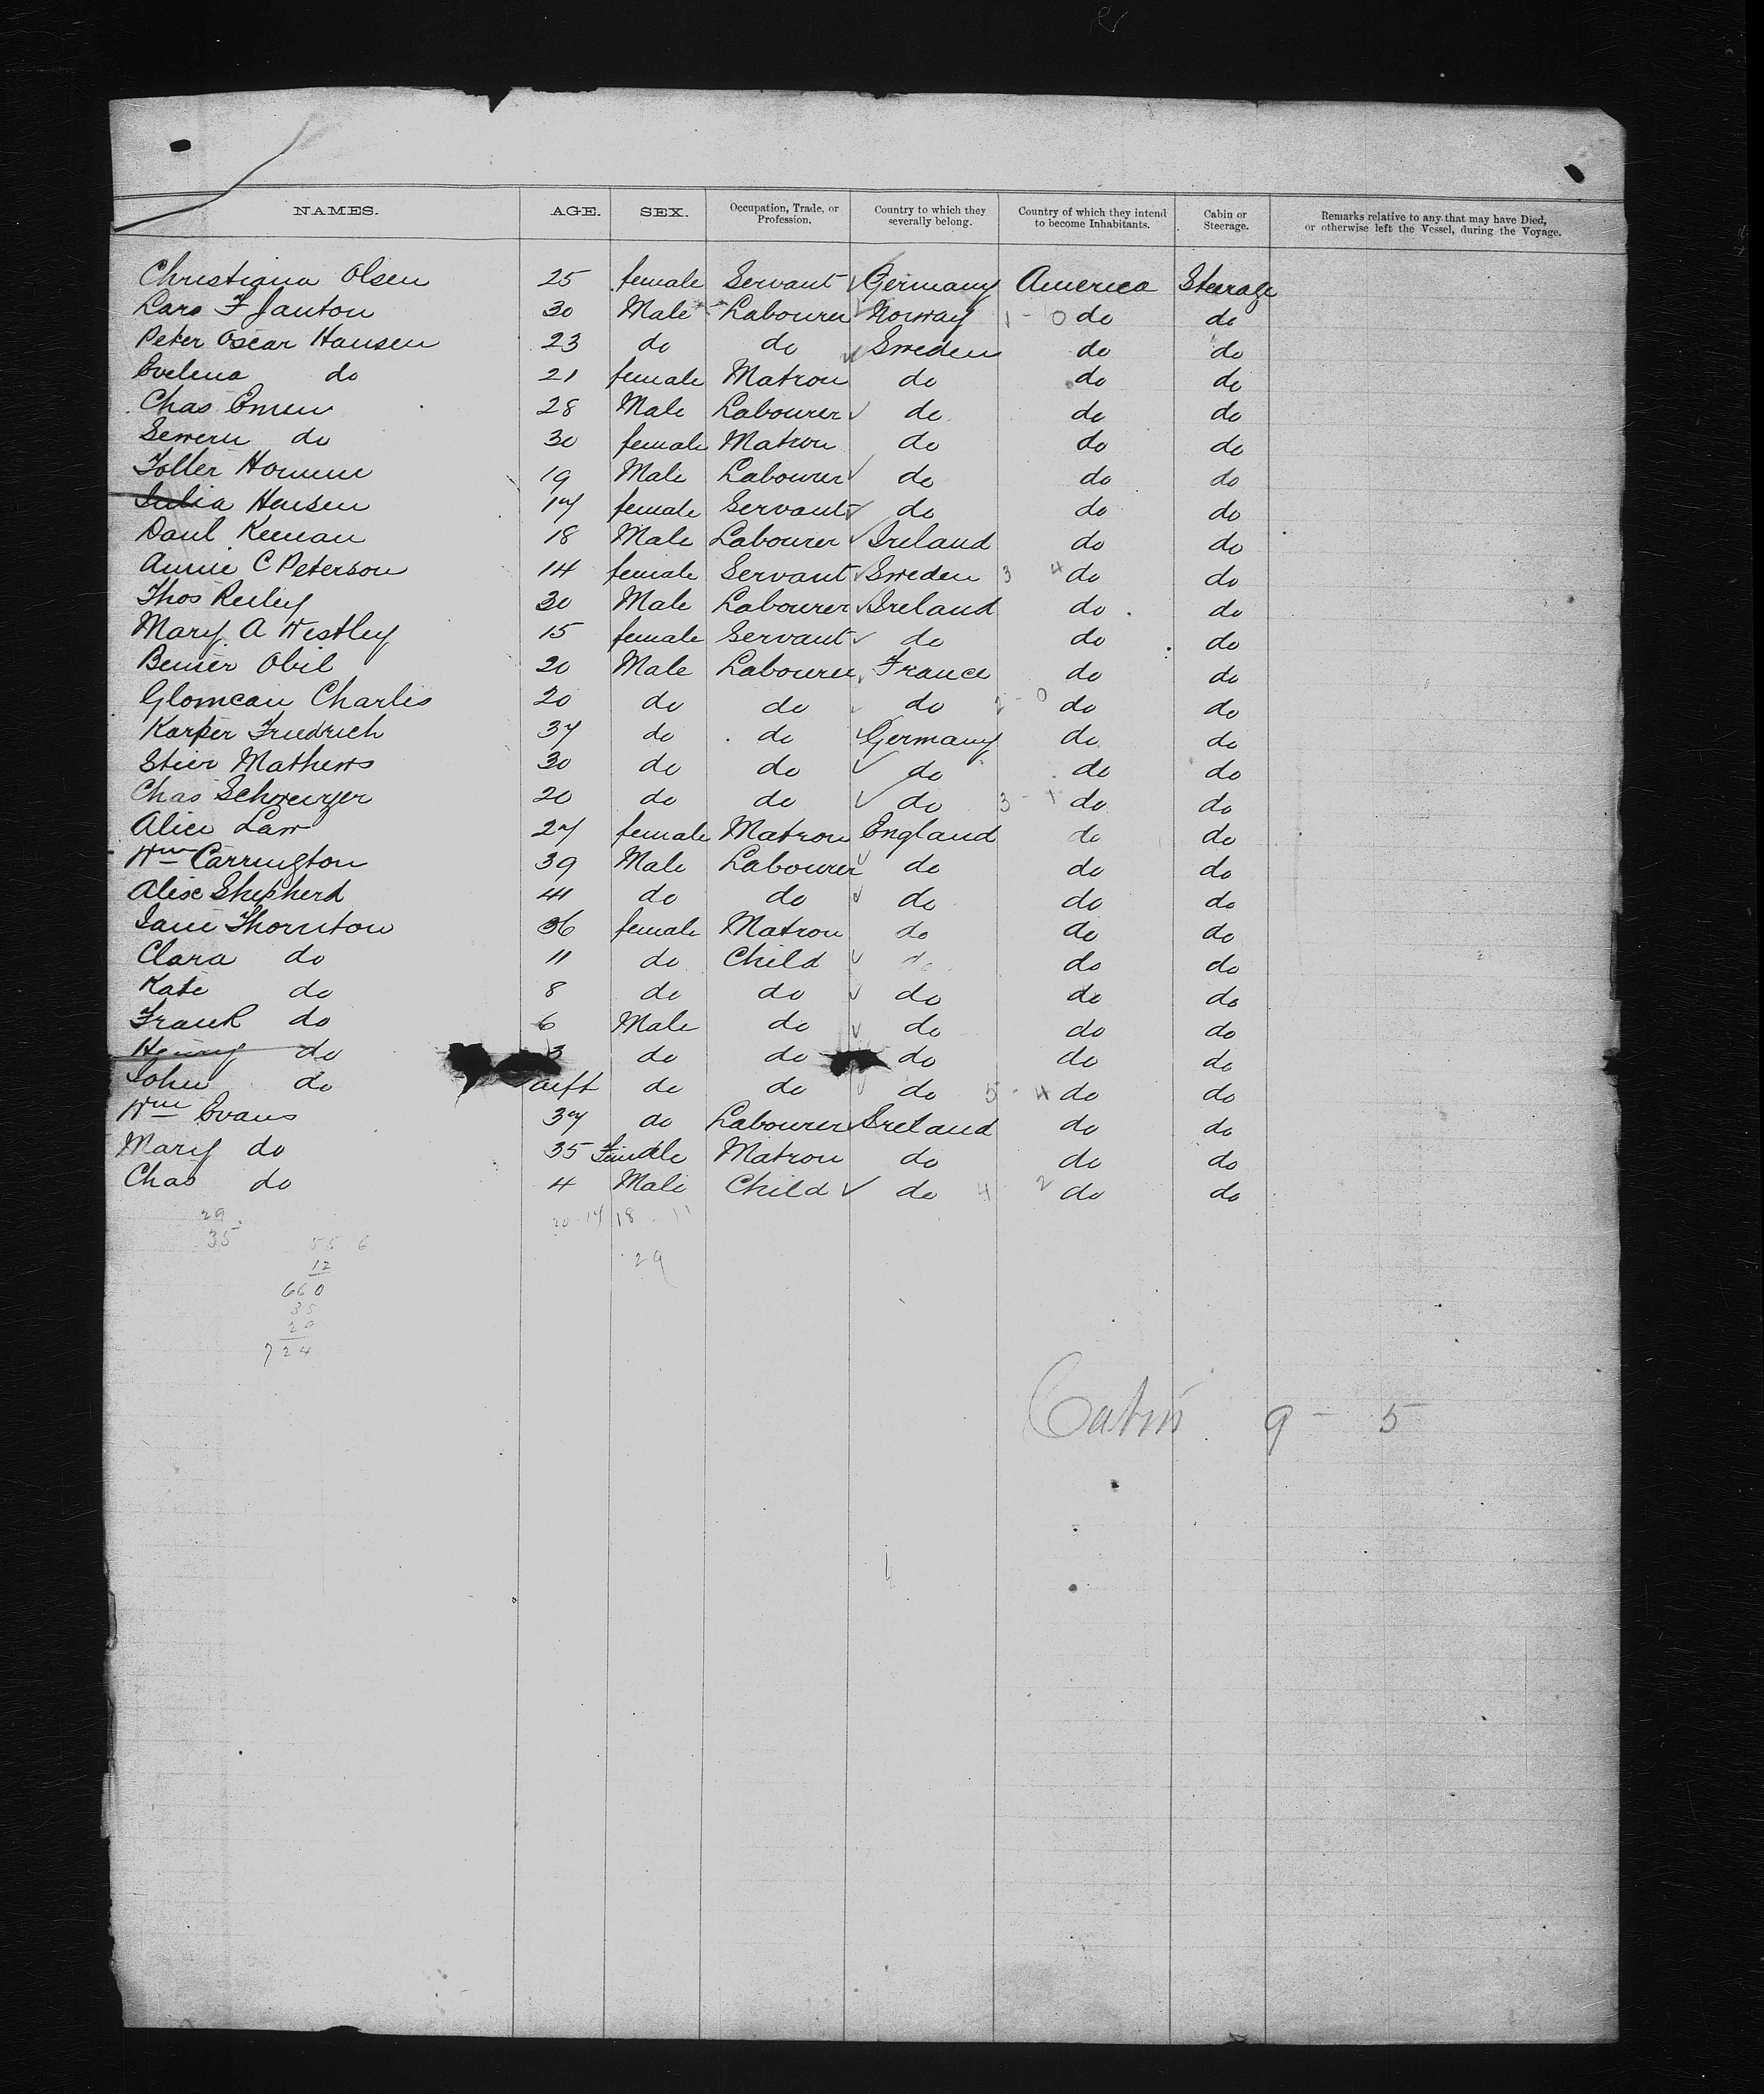 NAMES. AGE. SEX. Occupation, Trade, or Profession. Country to which they severally belong. Country of which they intend to become Inhabitants. Cabin or Steerage. Remarks relative to any that may have Died, or otherwise left the Vessel, during the Voyage.
Christiana Olsen 25 female Servant Germany America Steerage
Lars F Janton 30 Male Labourer Norway 1 - 0 do do
Peter Oscar Hansen 23 do do Sweden do do
Evelena do 21 female Matron do do do
Chas 28 Male Labourer do do do
do 30 female Matron do do do
19 Male Labourer do do do
Julia Hansen 17 female Servant do do do
Danl Keenan 18 Male Labourer Ireland do do
Annie C Peterson 14 female Servant Sweden 3 4 do do
Thos Reiley 30 Male Labourer Ireland do do
Mary A Westley 15 female Servant do do do
Obil 20 Male Labourer France do do
Charles 20 do do do 2 - 0 do do
Karper Friedrich 37 do do Germany do do
Mathews 30 do do do do do
Chas Schweizer 20 do do do 3 - 1 do do
Alice Law 27 female Matron England do do
Wm Carrington 39 Male Labourer do do do
Alex Shepherd 41 do do do do do
Jane Thornton 36 female Matron do do do
Clara do 11 do Child do do do
Kate do 8 do do do do do
Frank do 6 Male do do do do
Henry do 3 do do do do do
John do do do do 5 - 4 do do
Wm Evans 37 do Labourer Ireland do do
Mary do 35 Female Matron do do do
Chas do 4 Male Child do 4 2 do do
29 20 - 14 18 - 11
35
55 6
12 29
660
35
29
724
Cabin 9 - 5